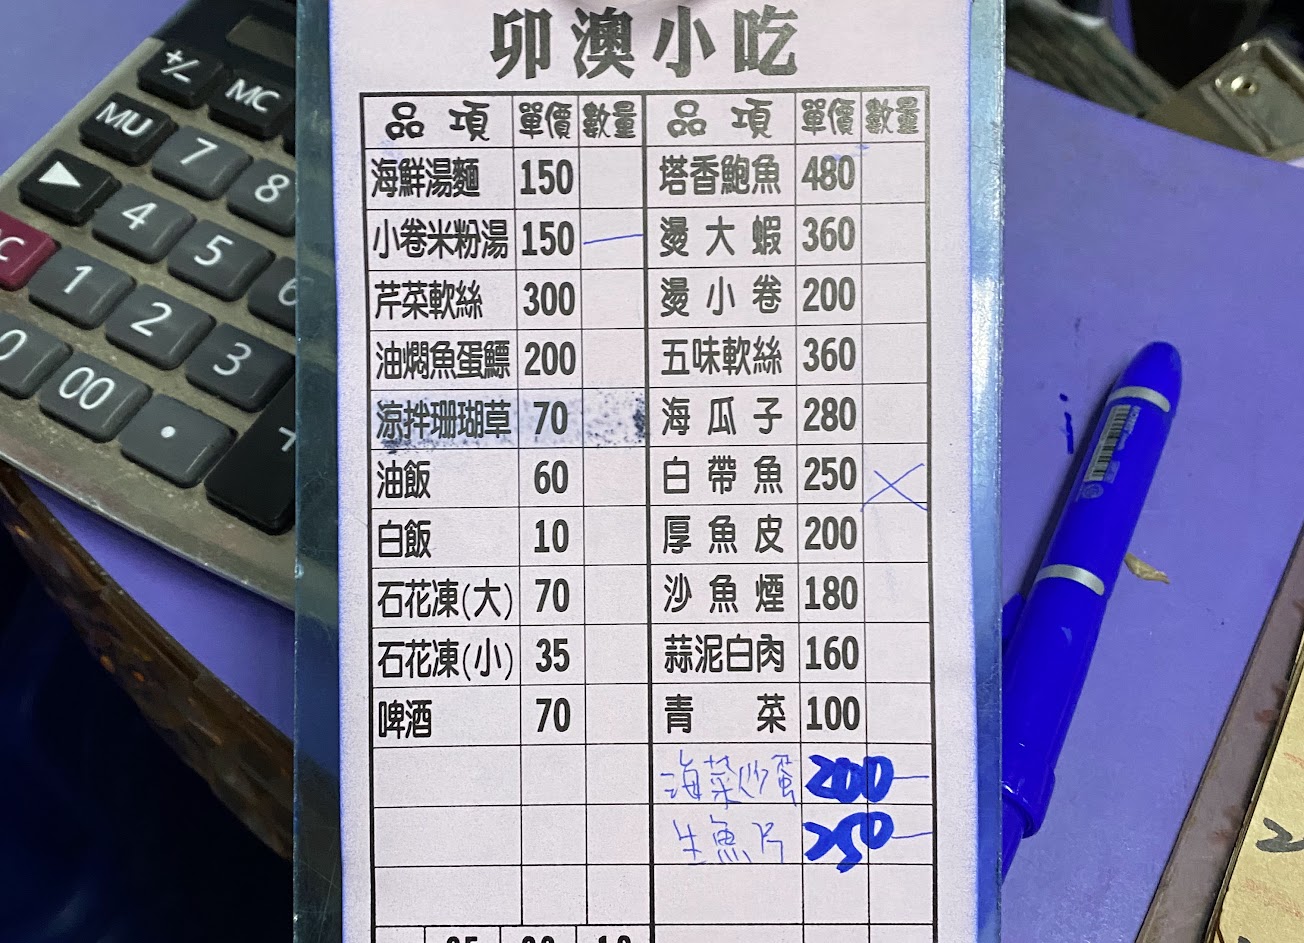 卯澳小吃
品項 單價 數量 品項 單價 數量
海鮮湯麵 150 塔香鮑魚 480
小卷米粉湯 150 一 燙大蝦 360
芹菜軟絲 300 燙小卷 200
油燜魚蛋鰾 200 五味軟絲 360
涼拌珊瑚草 70 海瓜子 280
油飯 60 白帶魚 250 X
白飯 10 厚魚皮 200
石花凍(大) 70 沙魚煙 180
石花凍(小) 35 蒜泥白肉 160
啤酒 70 青菜 100
海菜炒蛋 200 一
生魚片 250 一
+/- MC
MU 7 8
4 5 6
C 1 2 3
0 00 .
2